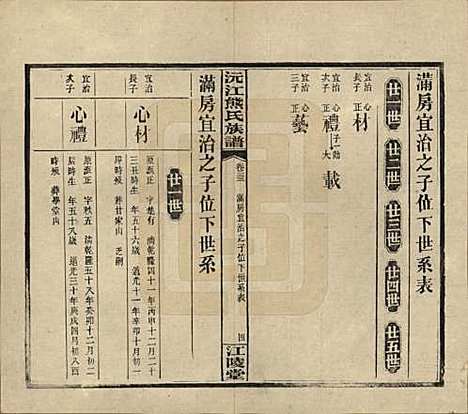 滿房宜治之子位下世系表
廿一世 廿二世 廿三世 廿四世 廿五世
宜治長子 正材
宜治次子 正禮 子一 勛大 載
宜治三子 正藝
沅江熊氏族譜
卷三 滿房宜治之子位下世系表 四
江陵堂
滿房宜治之子位下世系
廿一世
宜治長子 心材 派正 字楚有 清乾隆四十一年丙申十二月二十
三丑時生 年五十六歲 道光十一年辛卯十月初一
時歿 葬甘家山
宜治次子 心禮 派正 字秋五 清乾隆五十八年癸卯十二月初二
辰時生 年五十八歲 道光三十年庚戌四月初四酉
時歿 葬學堂內